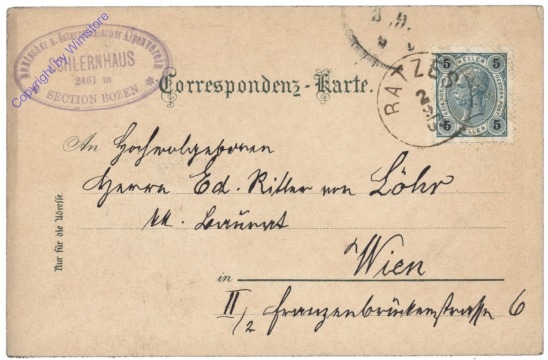 Deutscher u. Österreichischer Alpenverein
SCHLERNHAUS
2461 m
SECTION BOZEN
Copyright by Winstore
Correspondenz-Karte.
RATZES
5 HELLER 5
5 HELLER 5
An Hochwolgeboren
Herrn Ed. Ritter von Löhr
k. k. Baurat
Wien
in
II/2 Franzensbrückenstrasse 6
Nur für die Adresse.